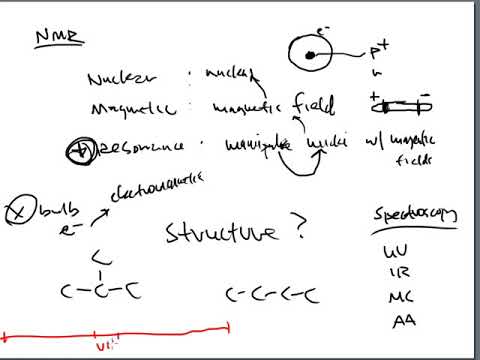 NMR
e-
P+
n
Nuclear : nuclei
Magnetic : magnetic field
+ -
Resonance : manipulate nuclei w/ magnetic fields
electromagnetic
bulb
e-
Structure?
Spectroscopy
UV
IR
MC
AA
C
C-C-C
C-C-C-C